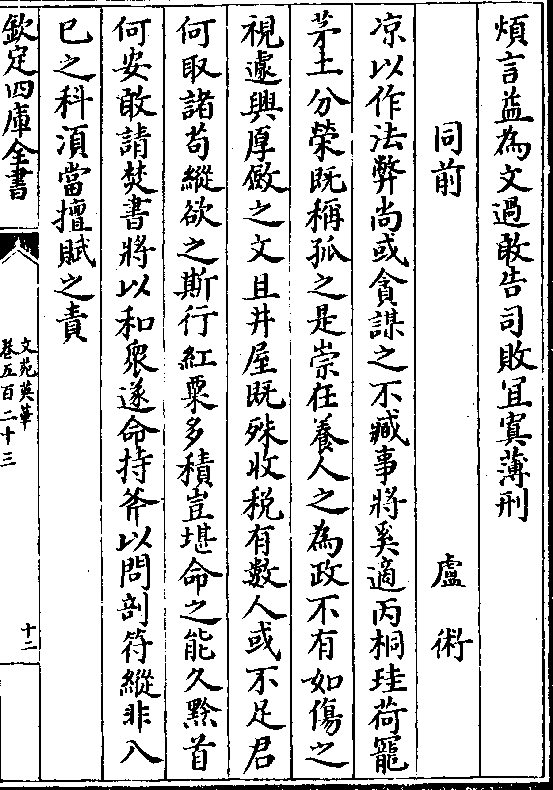 煩言益為文過敢告司敗宜寘薄刑
同前　盧術
凉以作法弊尚或貪謀之不臧事將奚適丙桐珪荷寵
茅土分榮既稱孤之是崇在養人之為政不有如傷之
視遽興厚斂之文且井屋既殊收税有數人或不足君
何取諸苟縱欲之斯行紅粟多積豈堪命之能久黔首
何安敢請焚書將以和衆遂命持斧以問剖符縱非入
巳之科湏當擅賦之責
欽定四庫全書
文苑英華
卷五百二十三
十二